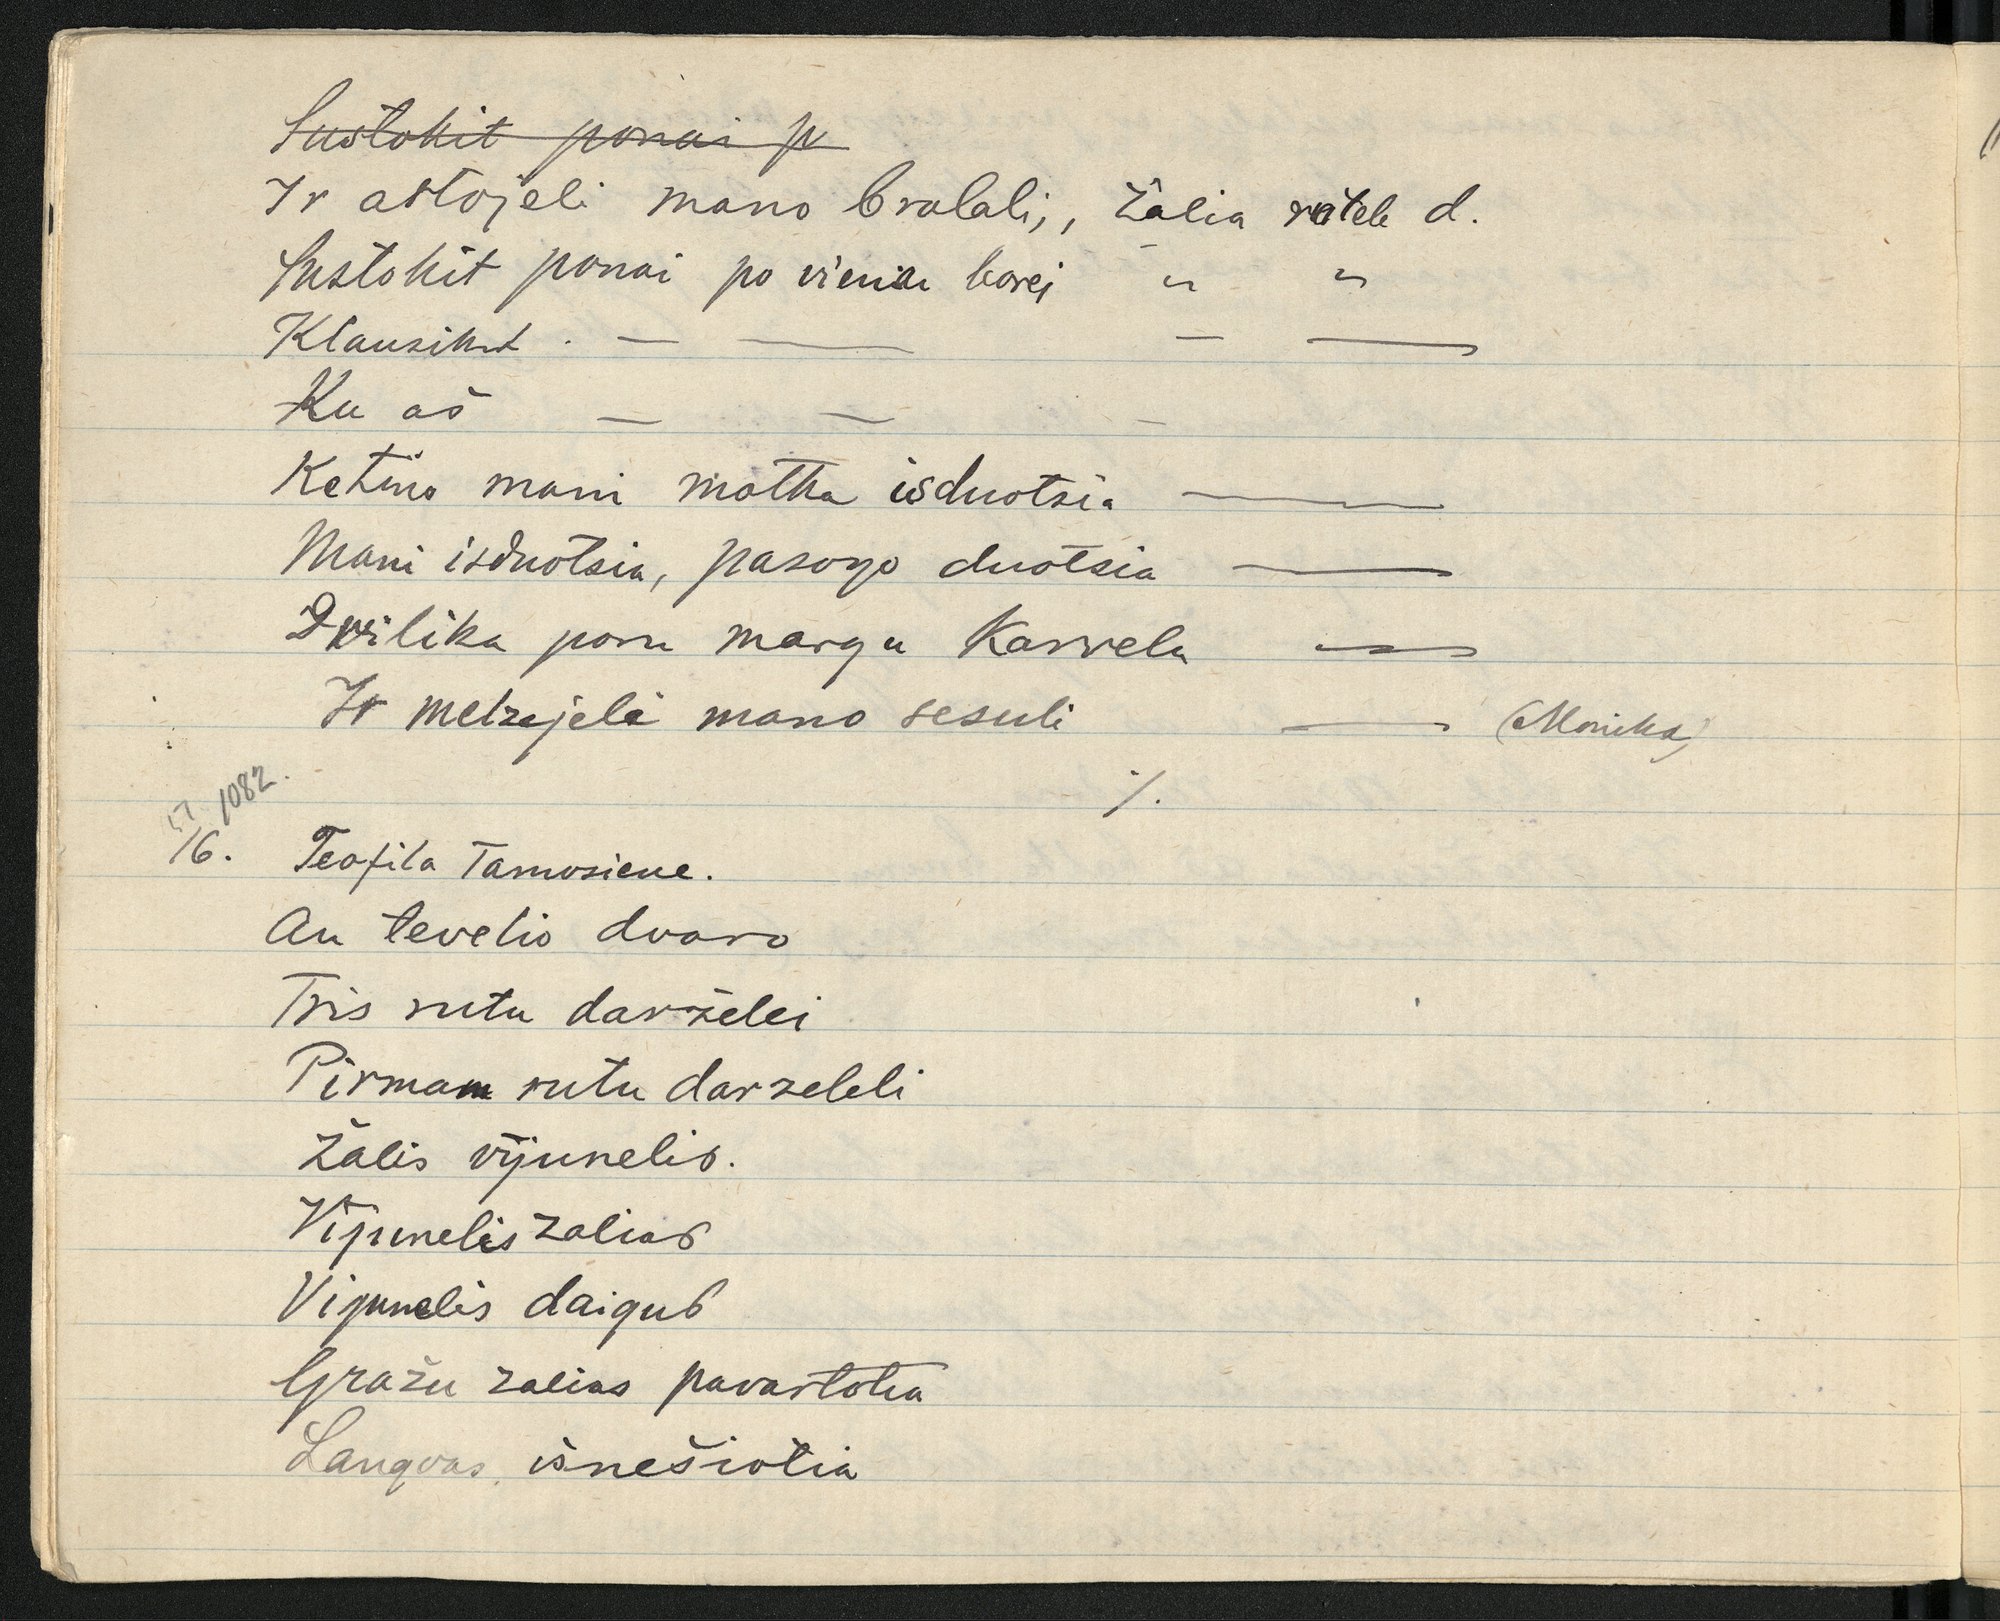 Sustokit ponai p
Ir astojeli mano bralali,, žalia rutele d.
Sustokit ponai po viena barei " "
Klausikit . — — — —
Ku aš — — —
Ketino mani motka isduotsia —
Mani isduotsia, pasogo duotsia —
Dvilika poru margu Karvelu —
Ir metzejele mano sesuli — (Monika)
·/.
1082.
16. Teofila Tamosiene.
An tevelio dvaro
Tris rutu darželei
Pirmam rutu darzeleli
Žalis vijunelis.
Vijunelis zalias
Vijunelis daigus
Gražu zalias pavartotia
Langvas išnešiotia